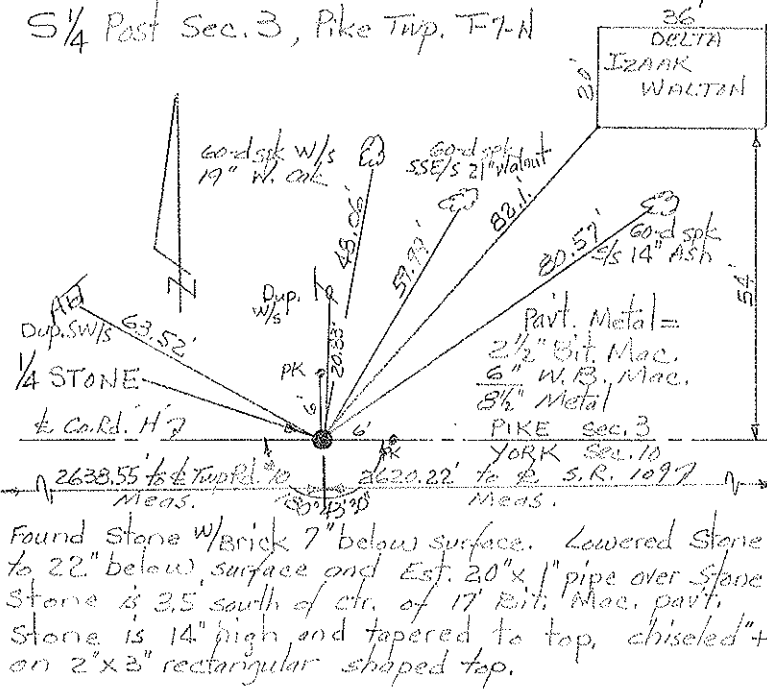 S 1/4 Post Sec. 3, Pike Twp. T-7-N
36'
DELTA
IZAAK
WALTON
20'
60-d spk W/s
19" W. Oak
60-d spk
SSE/s 21" Walnut
48.06'
59.99'
82.1'
80.57'
60-d spk
S/s 14" Ash
54'
N
Dup.
W/s
20.33'
Dup. SW/s
63.52'
1/4 STONE
PK
6'
6'
PK
Pavt. Metal =
2 1/2" Bit. Mac.
6" W.B. Mac.
8 1/2" Metal
℄ Co. Rd. H
PIKE Sec. 3
YORK Sec. 10
2638.55' to ℄ Twp Rd. 10
Meas.
2620.22' to ℄ S.R. 109
Meas.
Found Stone W/Brick 7" below surface. Lowered Stone
to 22" below surface and Est. 20" x 1" pipe over Stone
Stone is 3.5' south of ctr. of 17' Bit. Mac. pavt.
Stone is 14" high and tapered to top, chiseled "+
on 2" x 3" rectangular shaped top.